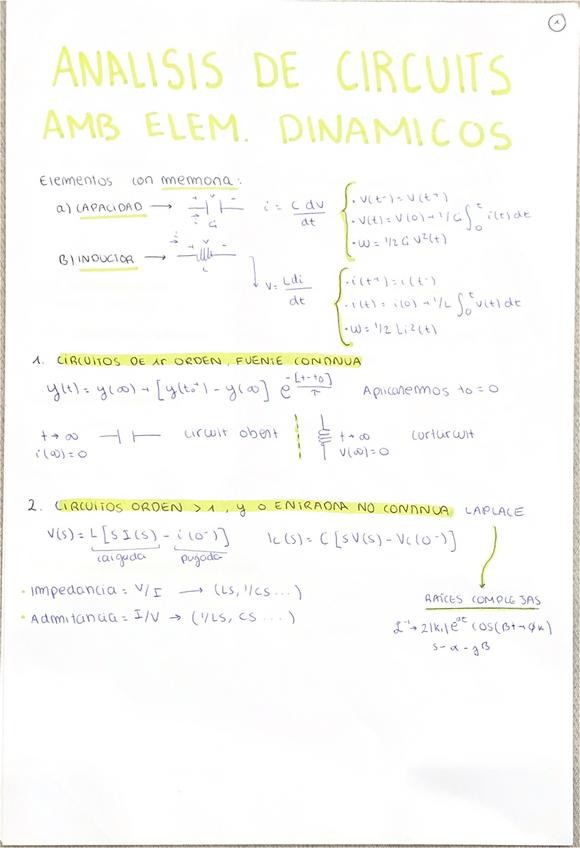 1
ANALISIS DE CIRCUITS
AMB ELEM. DINAMICOS
Elementos con memoria:
a) CAPACIDAD → + V - i C i = C dv/dt
· V(t⁻) = V(t⁺)
· V(t) = V(0) + 1/C ∫₀ᵗ i(t) dt
· W = 1/2 C V²(t)
B) INDUCTOR → i + V - L V = L di/dt
· i(t⁺) = i(t⁻)
· i(t) = i(0) + 1/L ∫₀ᵗ V(t) dt
· W = 1/2 L i²(t)
1. CIRCUITOS DE 1r ORDEN, FUENTE CONTINUA
y(t) = y(∞) + [y(t₀⁺) - y(∞)] e^(-[t-t₀]/τ) Aplicaremos t₀ = 0
t → ∞ circuit obert t → ∞ curtcircuit
i(∞) = 0 V(∞) = 0
2. CIRCUITOS ORDEN > 1, y o ENTRADA NO CONTINUA LAPLACE
V(s) = L [S I(S) - i(0⁻)] Ic(s) = C [SV(S) - Vc(0⁻)]
· Impedancia = V/I → (LS, 1/CS ...)
· Admitancia = I/V → (1/LS, CS ...)
RAÍCES COMPLEJAS
ℒ⁻¹ → 2|k₁| e^(αt) cos(βt + φk)
s - α - jβ